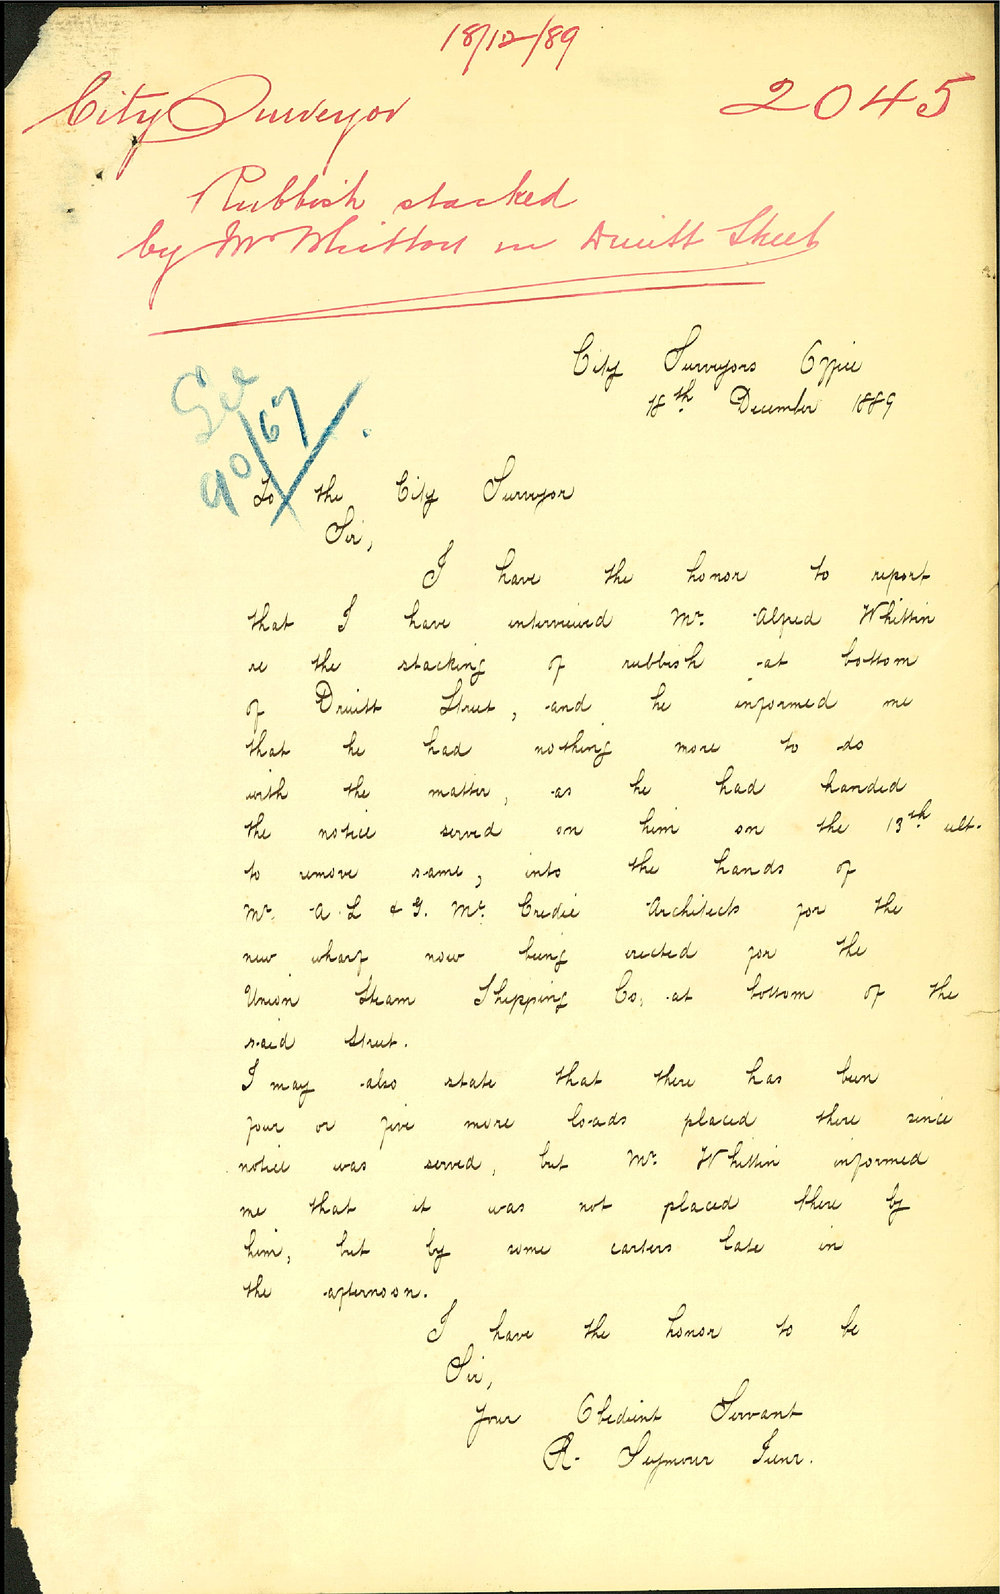 18/12/89
City Surveyor
2045
Rubbish stacked
by Mr Whitton in Druitt Street
City Surveyors Office
18th December 1889
90/67
To the City Surveyor
Sir,
I have the honor to report
that I have interviewed Mr. Alfred Whittin
re the stacking of rubbish at bottom
of Druitt Street, and he informed me
that he had nothing more to do
with the matter, as he had handed
the notice served on him on the 13th ult.
to remove same, into the hands of
Mr. A. L & G. Mc. Credie Architects for the
new wharf now being erected for the
Union Steam Shipping Co. at bottom of the
said Street.
I may also state that there has been
four or five more loads placed there since
notice was served, but Mr. Whittin informed
me that it was not placed there by
him, but by some carters late in
the afternoon.
I have the honor to be
Sir,
Your Obedient Servant
R. Seymour Junr.